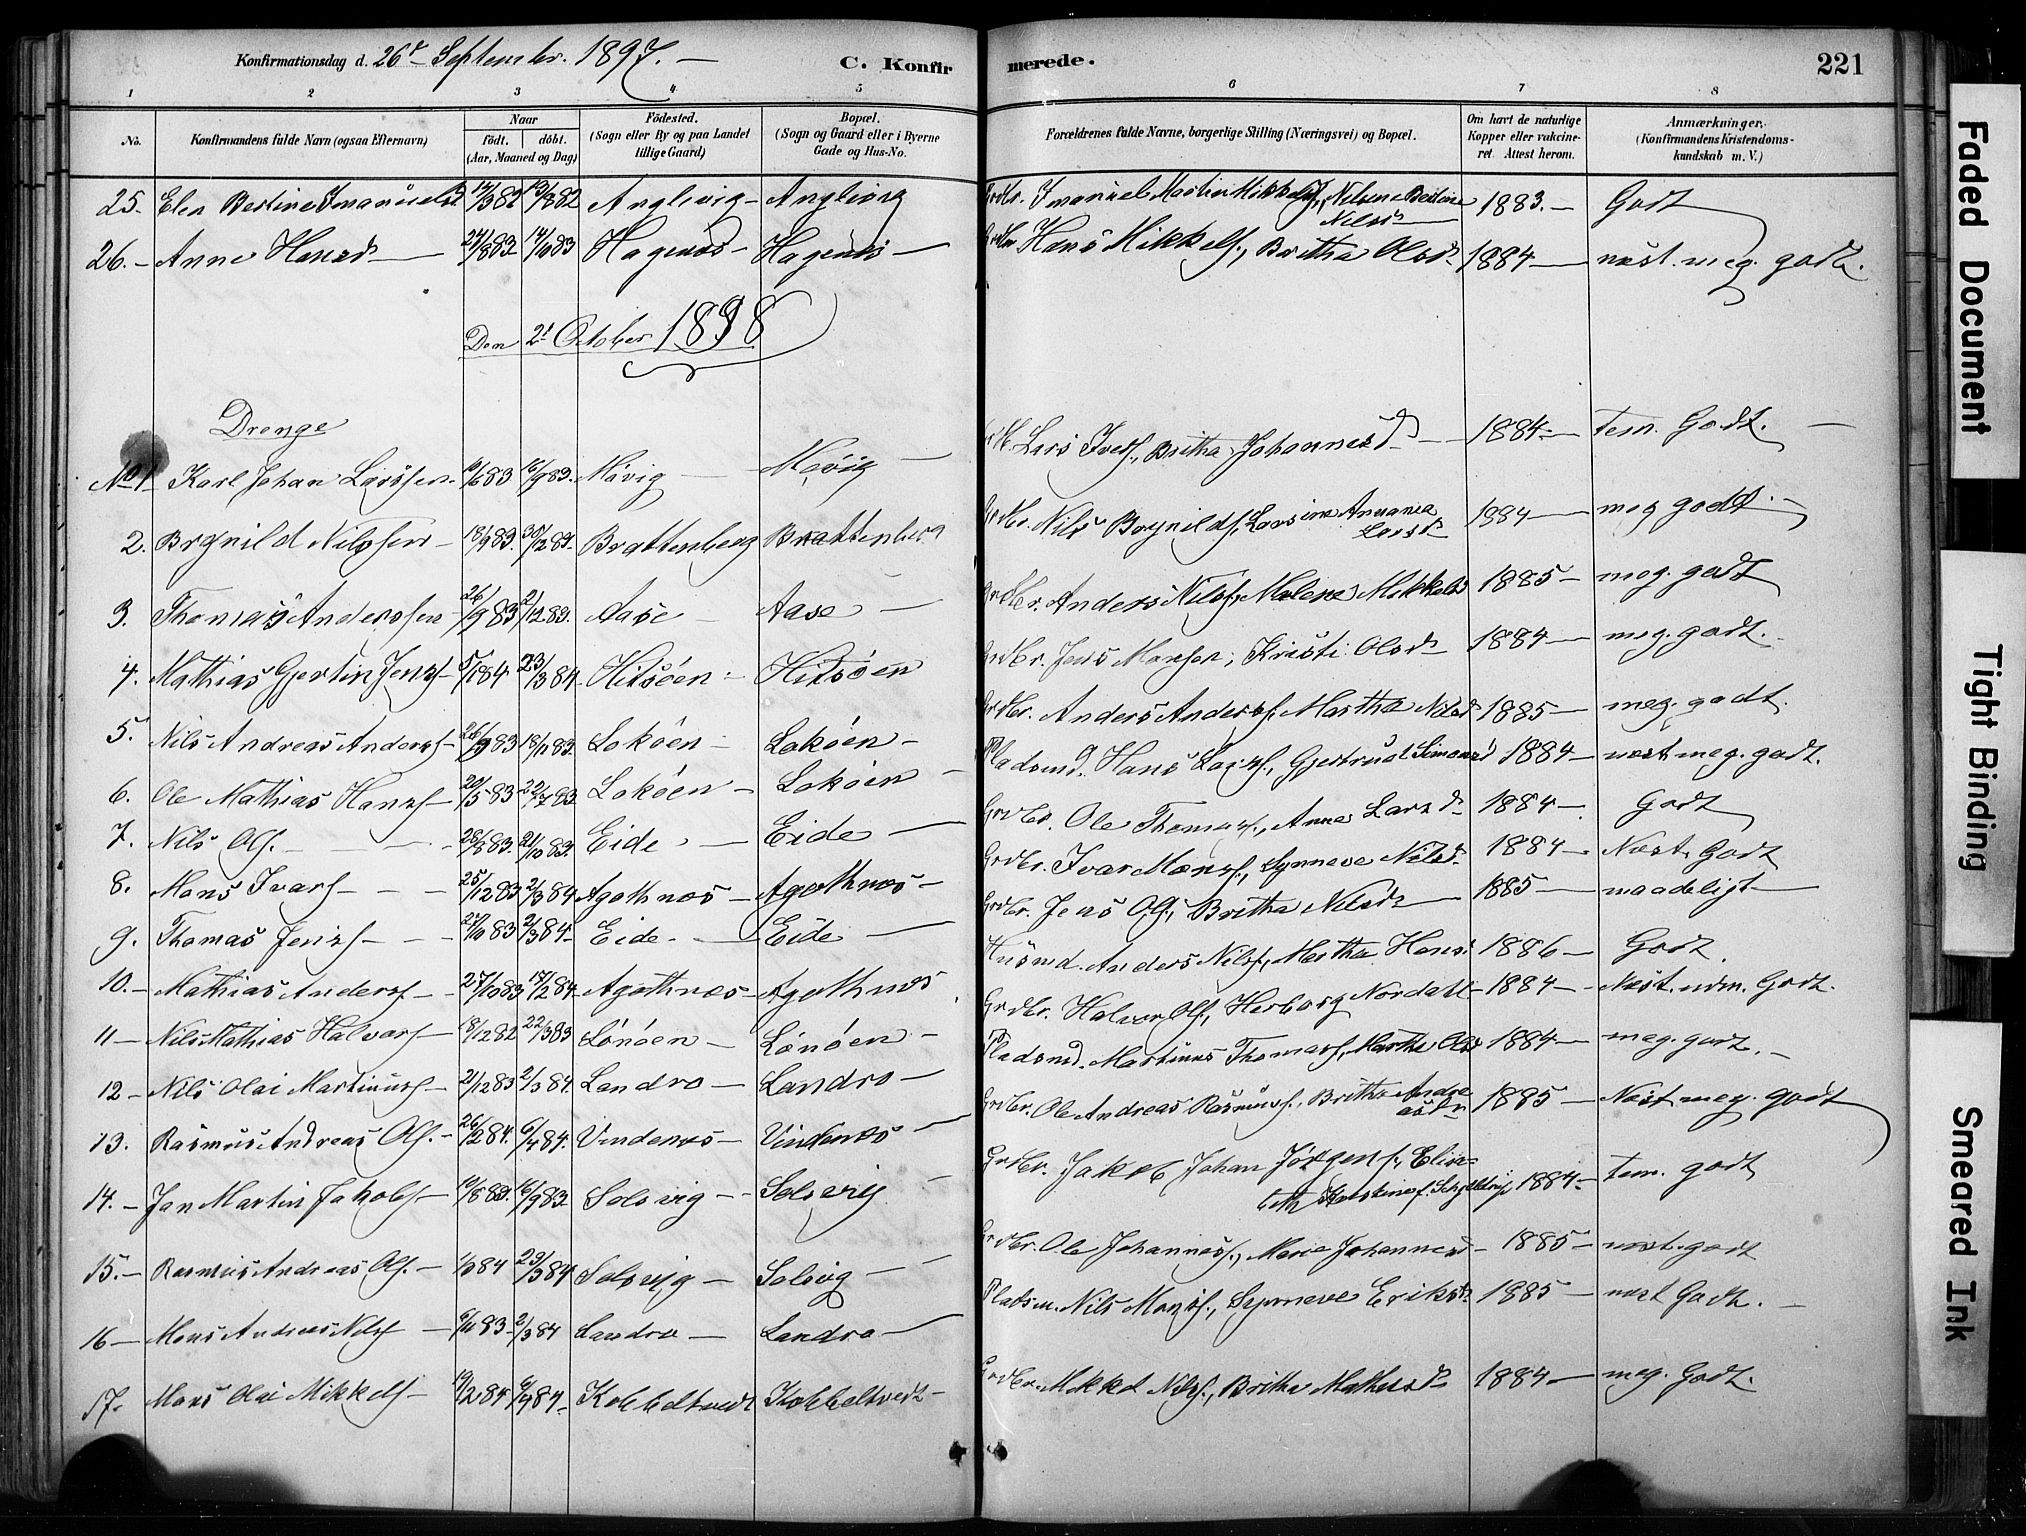 Konfirmationsdag d. 26de September. 1897. —
C. Konfirmerede.
221
1 2 3 4 5 6 7 8
No.
Konfirmandens fulde Navn (ogsaa Efternavn)
Naar
födt. döbt.
(Aar, Maaned og Dag)
Födested.
(Sogn eller By og paa Landet tillige Gaard)
Bopæl.
(Sogn og Gaard eller i Byerne Gade og Hus-No.
Forældrenes fulde Navne, borgerlige Stilling (Næringsvei) og Bopæl.
Om havt de naturlige Kopper eller vakcineret. Attest herom.
Anmærkninger.
(Konfirmandens Kristendomskundskab m. V.)
25. Elen Bertine Imanuelsd. 13/882 Anglevig Anglevig Grdbr. Imanuel Martin Mikkels., Nilsine Bertine Nilsd. 1883. Godt
26. Anne Hansd. 24/883 14/1083 Hagenes Hagenes Hans Mikkels., Britha Olsd. 1884 næst. meg. godt.
Den 2d October 1898
Drenge
No 1 Karl Johan Larssen 16/983 Møvig Møvig Lars Ivers., Britha Johannesd. 1884 tem. Godt.
2. Brynild Nilssen 18/983. 30/1283. Brattenberg Brattenberg Grdbr. Nils Brynilds., Larsine Annanna Larsd. 1884 meg godt.
3. Thomas Anderssen 26/983 2/1283. Aase Aase Grdbr. Anders Nils., Malene Mikkelsd. 1885 meg. godt
4. Mathias Gjertin Jens. 5/184 23/384 Hitsöen Hitsöen Grdbr. Jens Monsen, Kristi Olsd. 1884 meg. godt.
5. Nils Andreas Anders. 26/983 18/1183. Loköen Loköen Grdbr. Anders Anders., Martha Nilsd. 1885 meg. godt.
6. Ole Mathias Hans. 20/583 22/783 Loköen Loköen Pladsmd. Hans Lars., Gjertrud Simonsd. 1884 næst meg. godt.
7. Nils Ols. 28/883. 21/1083. Eide Eide Grdbr. Ole Thomas., Anne Larsd. 1884 Godt
8. Mons Ivars. 25/1283 2/384 Agothnes Agothnes Grdbr. Ivar Mons., Synneve Nilsd. 1884 Næst. Godt
9. Thomas Jens. 27/1083 2/384 Eide Eide Grdbr. Jens Ols., Britha Nilsd. 1885 maadeligt
10. Mathias Anders. 27/1083 17/284 Agothnes Agothnes Husmd. Anders Nils., Martha Hansd. 1886 Godt.
11 Nils Mathias Halvors. 18/1282 22/383 Lönöen Lönöen Grdbr. Halvor Ols., Herborg Nordahl 1884 Næst. udm. Godt.
12 Nils Olai Martinus. 21/1283 2/384 Landro Landro Pladsmd. Martinus Thomas., Martha Olsd. 1884 meg. godt.
13. Rasmus Andreas Ols. 26/284. 6/484. Vindenes Vindenes Grdbr. Ole Andreas Rasmus., Britha Andreasdr. 1885 Næst meg. godt
14. Jan Martin Jakobs. 10/883. 16/983 Solsvig Solsvig Grdbr. Jakob Johan Jörgens., Elisabeth 1884 tem. godt
15. Rasmus Andreas Ols. 1/384 29/384 Solsvig Solsvig Grdbr. Ole Johannes., Marie Johannesd. 1885 næst. godt
16 Mons Andreas Nils. 6/1183 2/384 Landro Landro Pladsm. Nils Mons., Synneve Eriksd. 1885 næst Godt.
17. Mons Olai Mikkels. 19/284 6/484 Kobbeltvedt Kobbeltvedt Grdbr. Mikkel Nils., Britha Mathiasd. 1884 meg. Godt.
Faded Document
Tight Binding
Smeared Ink